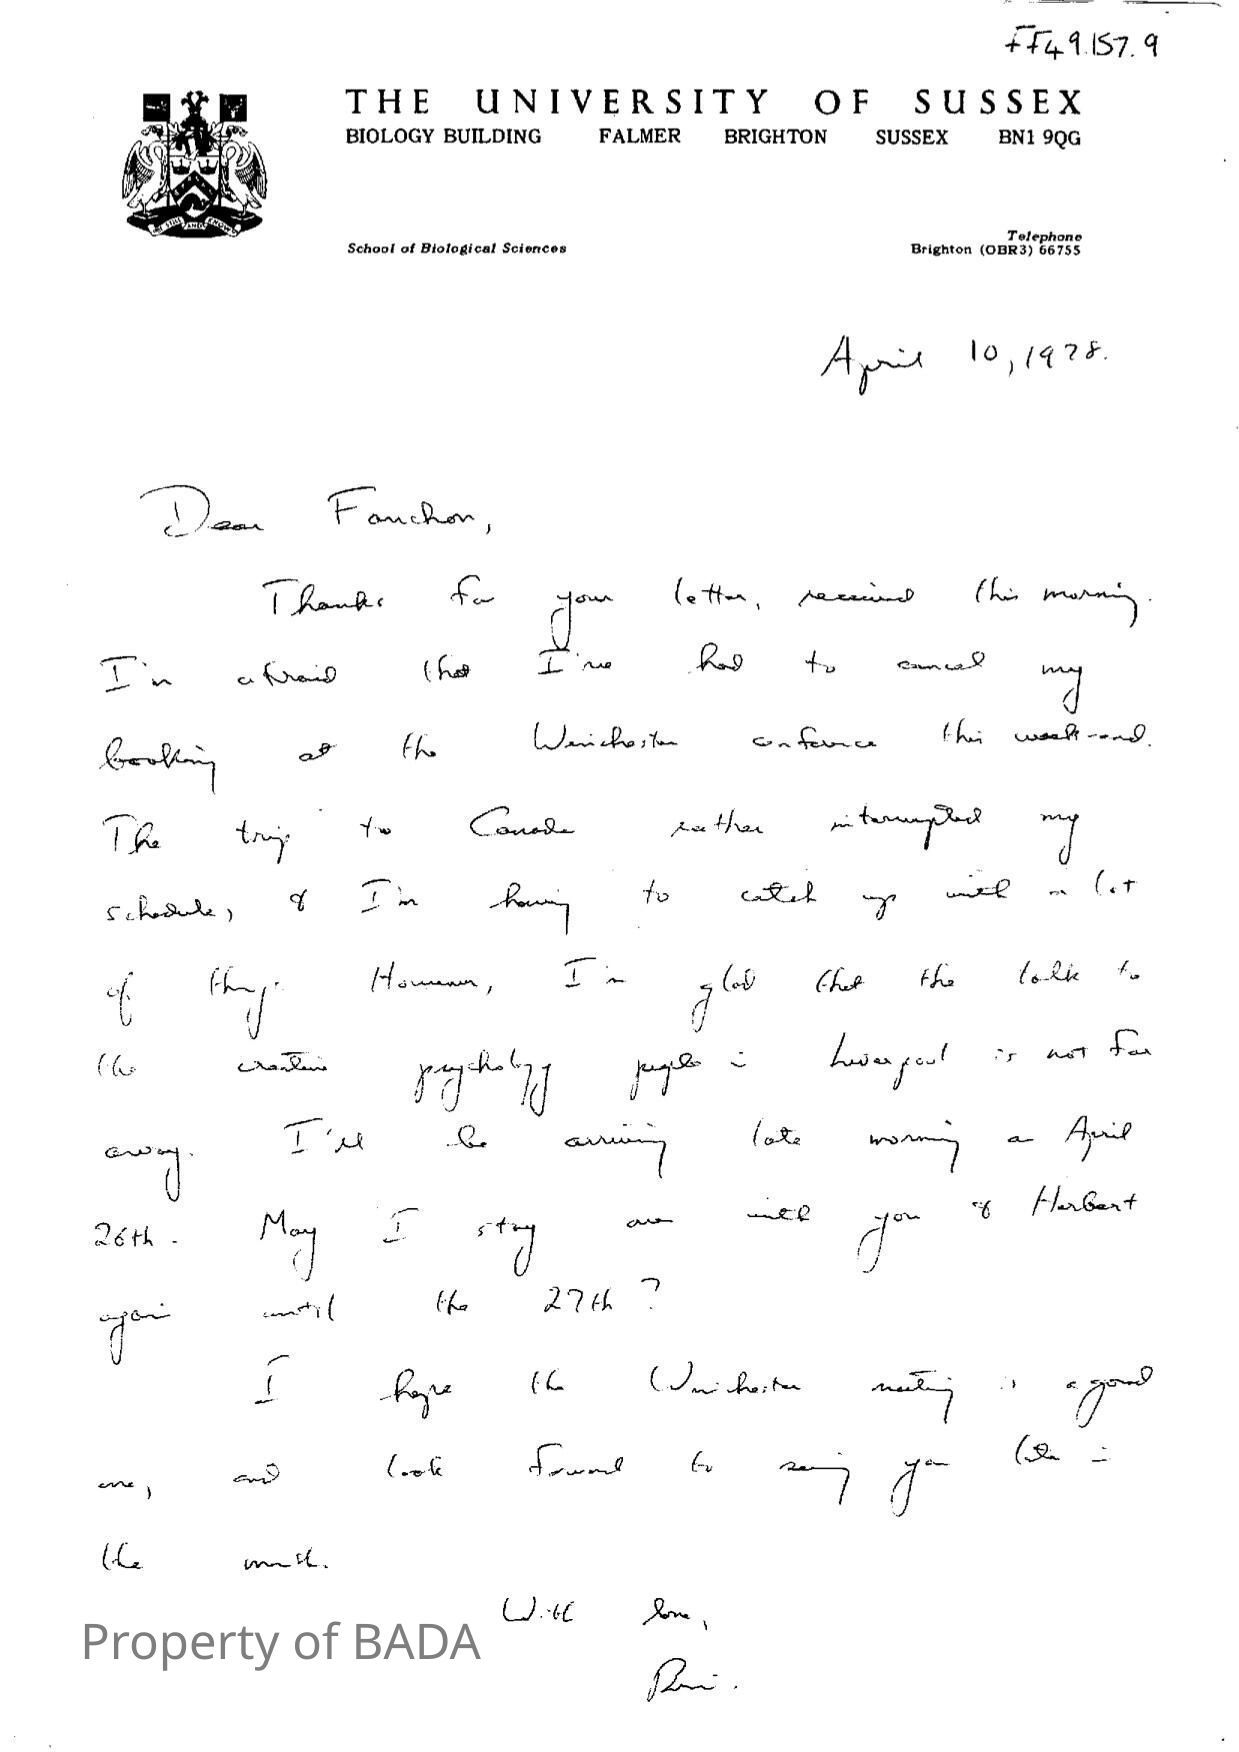 FF49.157.9
THE UNIVERSITY OF SUSSEX
BIOLOGY BUILDING FALMER BRIGHTON SUSSEX BN1 9QG
School of Biological Sciences
Telephone
Brighton (OBR3) 66755
April 10, 1978.
Dear Fanchon,
Thanks for your letter, received this morning.
I'm afraid that I've had to cancel my
booking at the Winchester conference this week-end.
The trip to Canada rather interrupted my
schedule, & I'm having to catch up with a lot
of things. However, I'm glad that the talk to
the creative psychology people in Liverpool is not far
away. I'll be arriving late morning on April
26th. May I stay over with you & Herbert
again until the 27th?
I hope the Winchester meeting is a good
one, and look forward to seeing you later in
the month.
With love,
Property of BADA